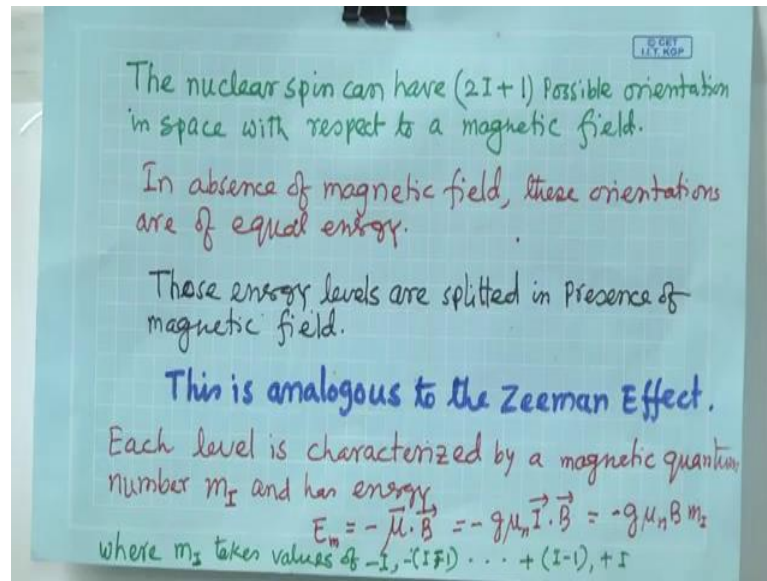 © CET
I.I.T. KGP
The nuclear spin can have (2I+1) Possible orientation
in space with respect to a magnetic field.
In absence of magnetic field, these orientations
are of equal energy.
These energy levels are splitted in Presence of
magnetic field.
This is analogous to the Zeeman Effect.
Each level is characterized by a magnetic quantum
number m_I and has energy
E_m = - μ⃗·B⃗ = - gμ_n I⃗·B⃗ = -gμ_n B m_I
where m_I takes values of -I, -(I-1) · · · · + (I-1), + I